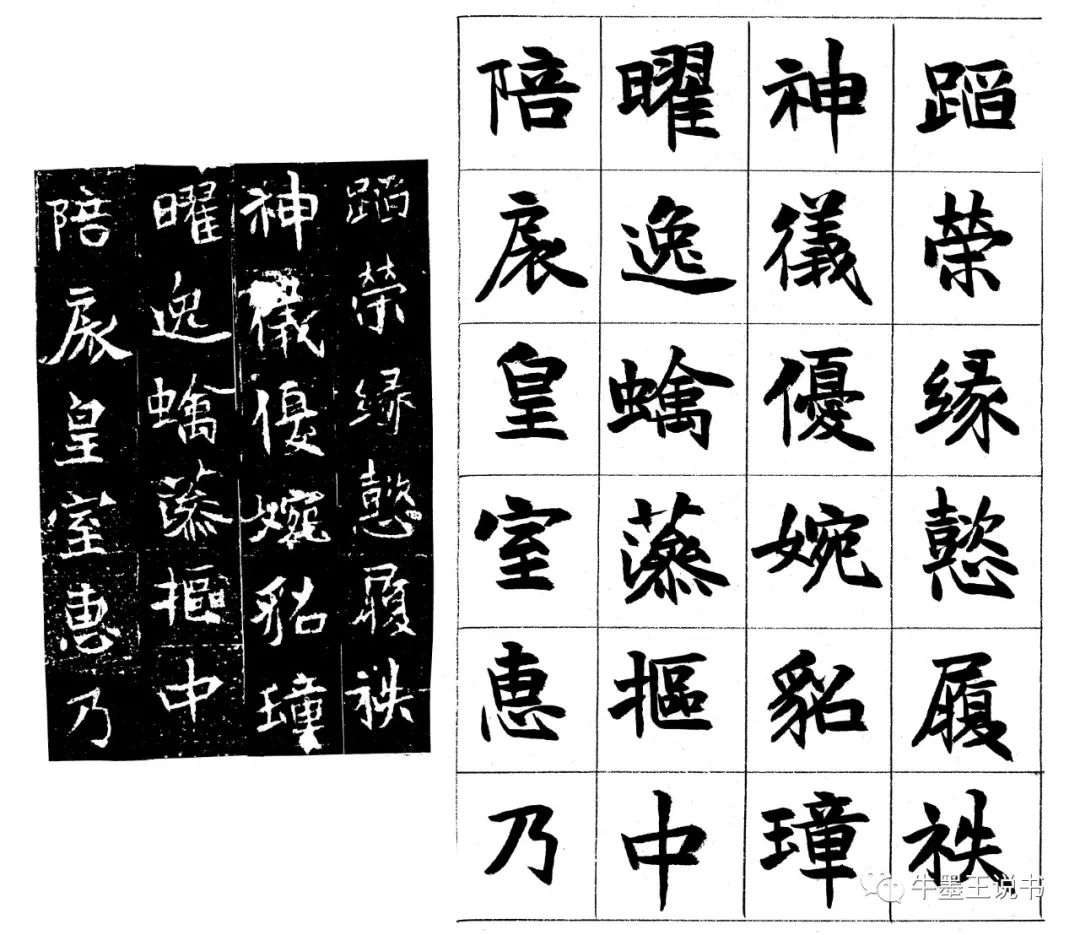 蹈荣缘懿履祑
神儀優婉貂璋
曜逸樞中
陪扆皇室惠乃
蹈荣缘懿履祑
神儀優婉貂璋
曜逸樞中
陪扆皇室惠乃
牛墨王说书